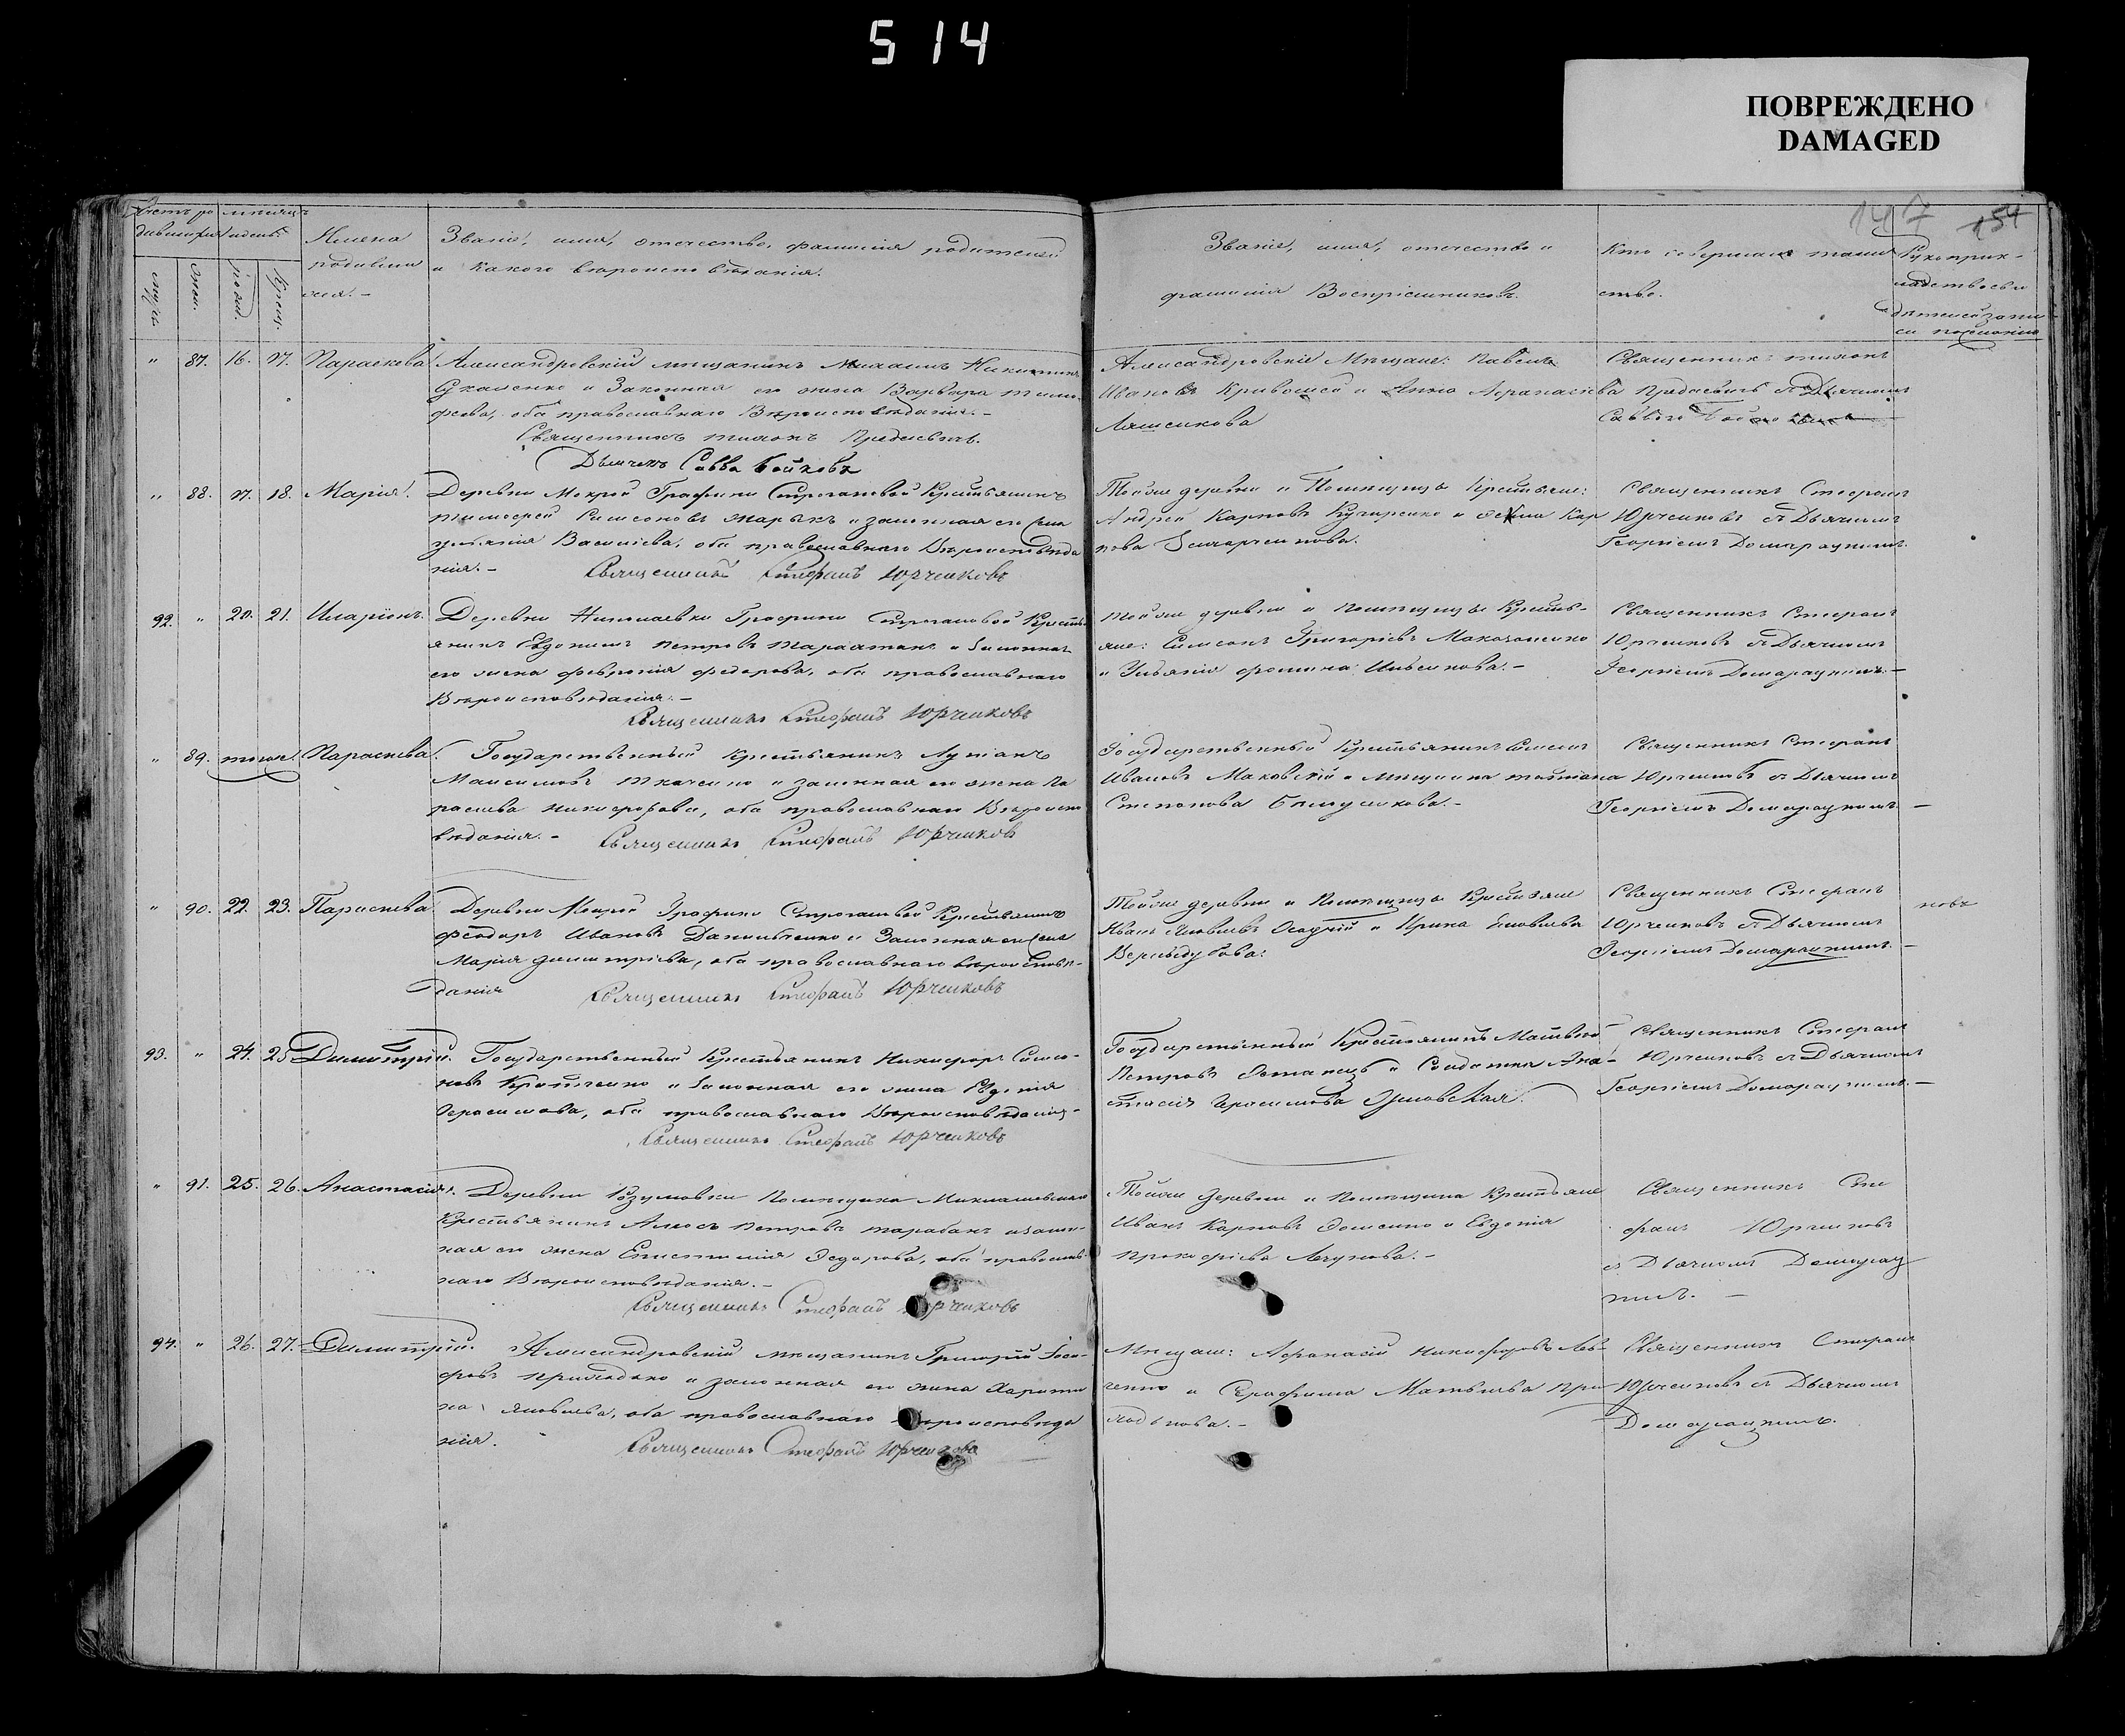 514
ПОВРЕЖДЕНО
DAMAGED
147 154
Имена
родивши
хся.-
Званіе, имя, отчество, фамилія родителей
и какого вѣроисповѣданія.
Званіе, имя, отчество и
фамилія Воспріемниковъ.
Кто совершалъ таин
ство.
Рукоприк-
87. 16. 17. Параскева
Александровскій мѣщанинъ Михаилъ Никитинъ
и Законная его жена Варвара Тимо
феева, оба православнаго Вѣроисповѣданія.-
Священникъ Тихонъ
Дьячекъ Савва Бойковъ
Александровскіе Мѣщане: Павелъ
Ивановъ Кривошей и Анна Афанасіева
Ляшенкова
Священникъ Тихонъ
съ Дьячкомъ
88. 17. 18. Марія.
Деревни Мокрой Графини Строгановой Крестьянинъ
Тимофей Самсоновъ и законная его жена
Василіева, оба православнаго Вѣроисповѣда
нія.-
Священникъ Стефанъ Юрченковъ
Тойже деревни и Помѣщицы Крестьяне:
Андрей Карповъ Кучеренко и Кар
пова
Священникъ Стефанъ
Юрченковъ съ Дьячкомъ
Георгіемъ Домарацкимъ.
92. " 20. 21. Иларіонъ.
Деревни Николаевки Графини Строгановой Кресть
янинъ Евдокимъ Петровъ и Законная
его жена Февронія Федорова, оба православнаго
Вѣроисповѣданія.-
Священникъ Стефанъ Юрченковъ
Тойже деревни и Помѣщицы Кресть-
яне: Самсонъ Григорьевъ
и Ульянія Фомина
Священникъ Стефанъ
Юрченковъ съ Дьячкомъ
Георгіемъ Домарацкимъ.-
" 89. тогоже. Параскева.
Государственный Крестьянинъ Лукіанъ
Максимовъ Ткаченко и законная его жена Па
раскева Никифорова, оба православнаго Вѣроиспо
вѣданія.-
Священникъ Стефанъ Юрченковъ
Государственный Крестьянинъ
Ивановъ Маковскій и мѣщанка Татіана
Степанова
Священникъ Стефанъ
Юрченковъ съ Дьячкомъ
Георгіемъ Домарацкимъ
" 90. 22. 23. Параскева
Деревни Мокрой Графини Строгановой Крестьянинъ
Феодоръ Ивановъ Данильченко и Законная его жена
Марія Димитріева, оба православнаго Вѣроисповѣ-
данія
Священникъ Стефанъ Юрченковъ
Тойже деревни и Помѣщицы Крестьяне
Иванъ Яковлевъ Осадчій и Ирина Яковлева
Вернидубова.
Священникъ Стефанъ
Юрченковъ съ Дьячкомъ
Георгіемъ Домарацкимъ.-
новъ
93. " 24. 25 Димитрій.
Государственный Крестьянинъ Никифоръ Самсо-
новъ и Законная его жена Евдокія
Герасимова, оба православнаго Вѣроисповѣданія-
Священникъ Стефанъ Юрченковъ
Государственный Крестьянинъ Матвей
Петровъ и Солдатка Ана-
стасія Герасимова
Священникъ Стефанъ
Юрченковъ съ Дьячкомъ
Георгіемъ Домарацкимъ.-
" 91. 25. 26. Анастасія.
Деревни Разумовки Помѣщика
Крестьянинъ Амосъ Петровъ Тарабанъ и закон-
ная его жена Федорова, оба православ-
наго Вѣроисповѣданія.-
Священникъ Стефанъ Юрченковъ
Тойже Деревни и Помѣщика Крестьяне
Иванъ Карповъ и Евдокія
Прокофіева
Священникъ Сте
фанъ Юрченковъ
съ Дьячкомъ Домарац
кимъ.-
94. " 26. 27. Димитрій.
Александровскій мѣщанинъ Григорій Іоси-
фовъ и законная его жена Харити
на Яковлева, оба православнаго Вѣроисповѣда
нія.
Священникъ Стефанъ Юрченковъ
Мѣщане: Афанасій Никифоровъ Лев-
ченко и Серафима Матвѣева При
ходькова.-
Священникъ Стефанъ
Юрченковъ съ Дьячкомъ
Домарацкимъ.